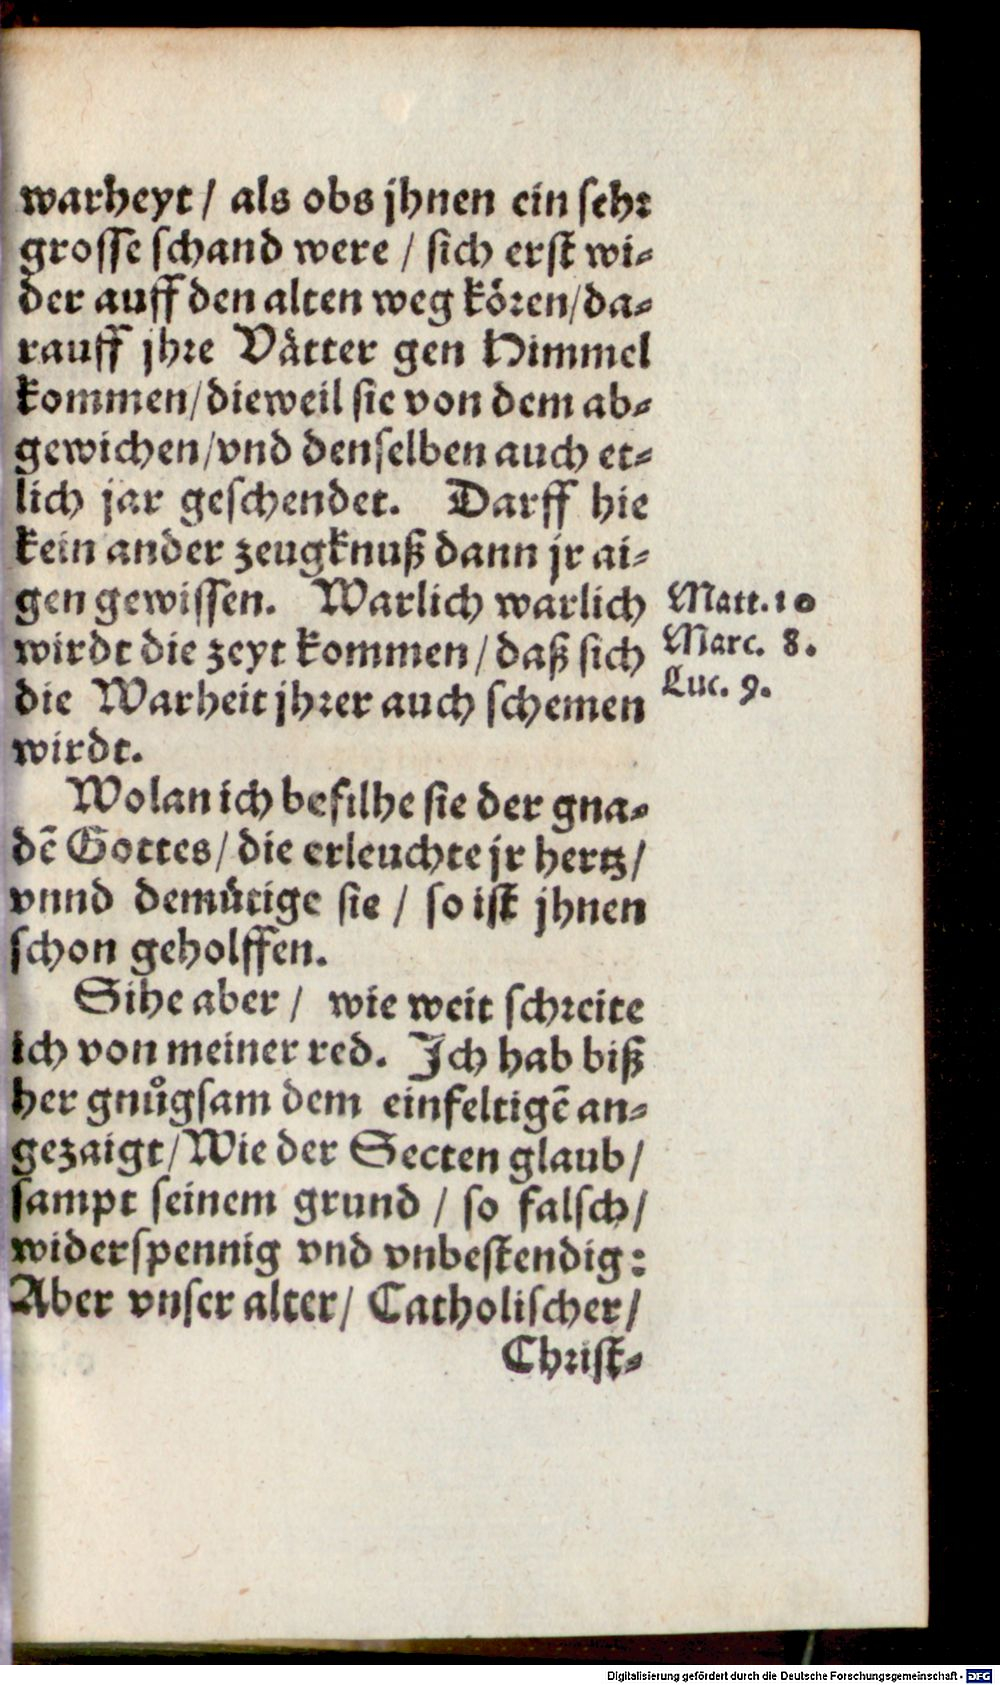 warheyt / als obs jhnen ein sehr
grosse schand were / sich erst wi-
der auff den alten weg kören/da-
rauff jhre Vätter gen Himmel
kommen/dieweil sie von dem ab-
gewichen/vnd denselben auch et-
lich jar geschendet. Darff hie
kein ander zeugknuß dann jr ai-
gen gewissen. Warlich warlich
wirdt die zeyt kommen/daß sich
die Warheit jhrer auch schemen
wirdt.
Matt. 10
Marc. 8.
Luc. 9.
Wolan ich befilhe sie der gna-
dẽ Gottes/die erleuchte jr hertz/
vnnd demütige sie / so ist jhnen
schon geholffen.
Sihe aber / wie weit schreite
ich von meiner red. Ich hab biß
her gnůgsam dem einfeltigẽ an-
gezaigt/Wie der Secten glaub/
sampt seinem grund / so falsch/
widerspennig vnd vnbestendig:
Aber vnser alter/ Catholischer/
Christ-
Digitalisierung gefördert durch die Deutsche Forschungsgemeinschaft - DFG